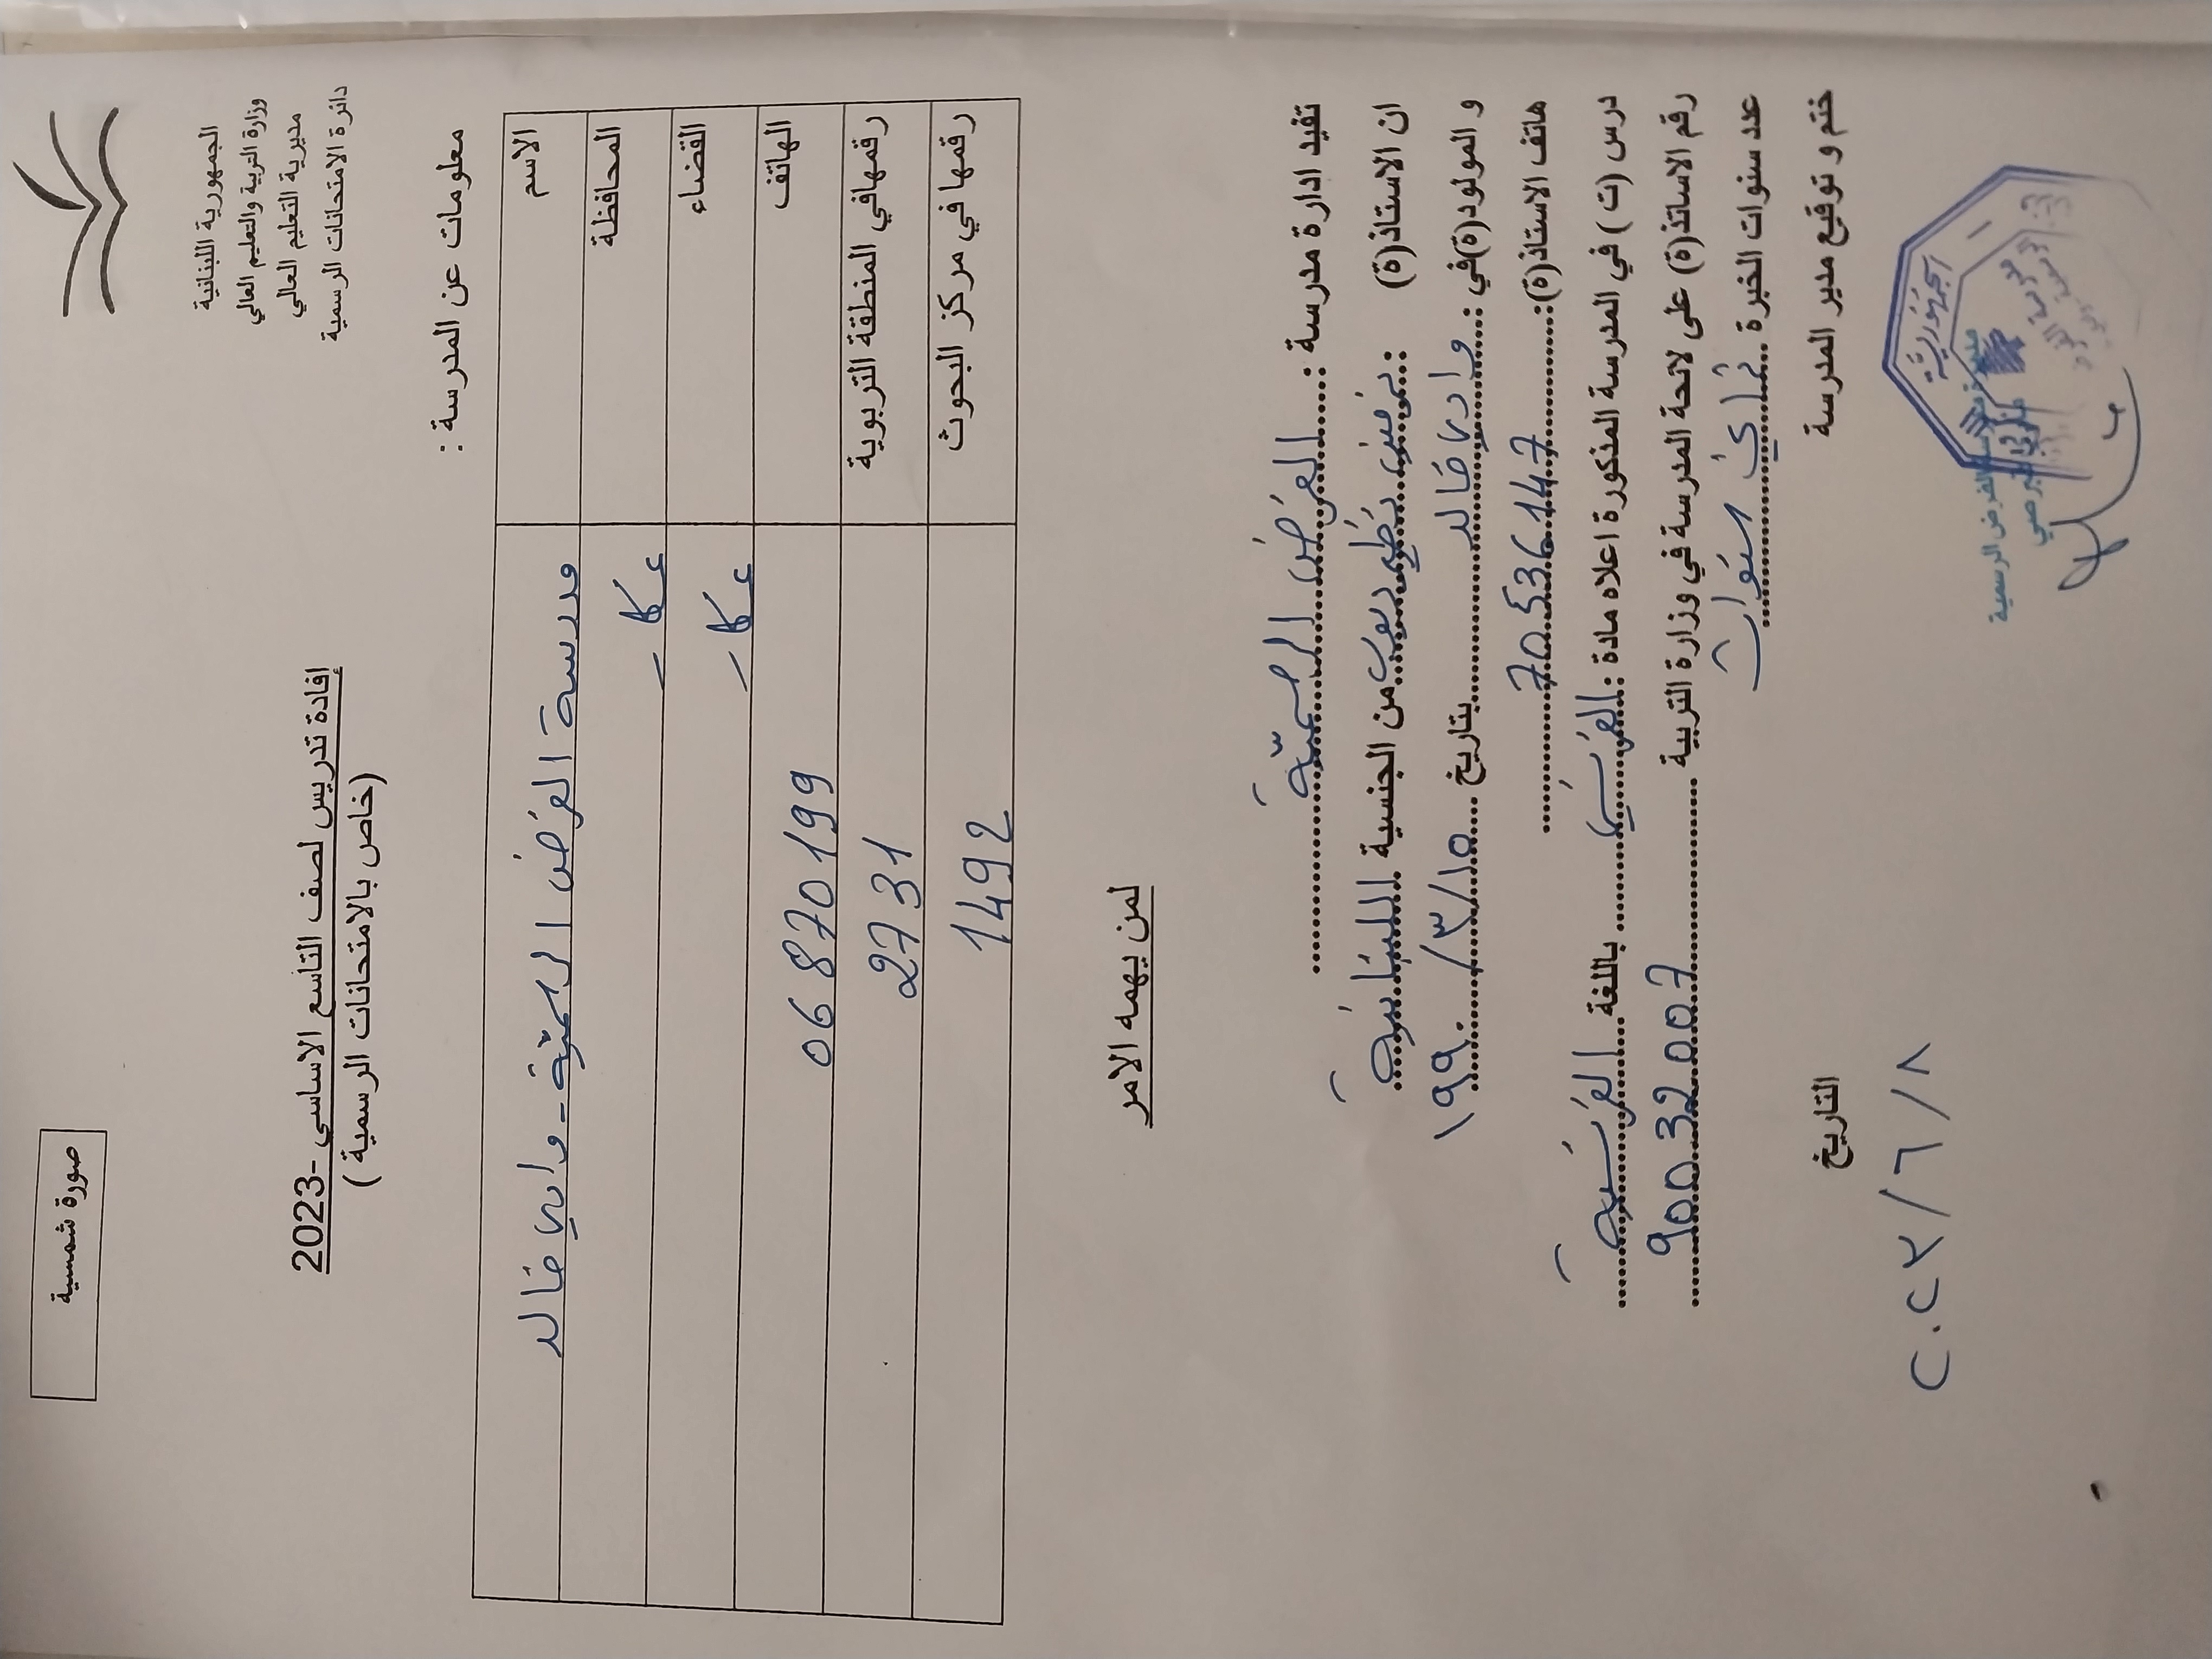 الجمهورية اللبنانية
وزارة التربية والتعليم العالي
مديرية التعليم العالي
دائرة الامتحانات الرسمية
صورة شمسية
إفادة تدريس لصف التاسع الاساسي -2023
(خاص بالامتحانات الرسمية )
معلومات عن المدرسة :
الاسم مدرسة الفرض الرسمية - وادي خالد
المحافظة عكار
القضاء عكار
الهاتف 06 870 199
رقمها في المنطقة التربوية 2731
رقمها في مركز البحوث 1492
لمن يهمه الامر
تفيد ادارة مدرسة : الفرض الرسمية
ان الاستاذ(ة) : من الجنسية اللبنانية
و المولود(ة)في : وادي خالد بتاريخ
هاتف الاستاذ(ة): 70536147
درس (ت) في المدرسة المذكورة اعلاه مادة : باللغة
رقم الاستاذ(ة) على لائحة المدرسة في وزارة التربية 90032007
عدد سنوات الخبرة ثماني سنوات
ختم و توقيع مدير المدرسة التاريخ
٨/٦/٢٠٢٣